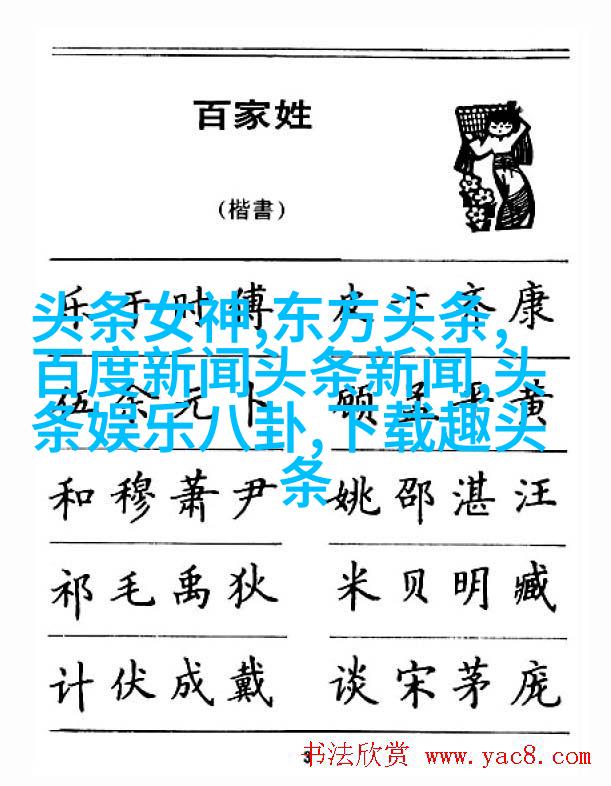 百家姓
(楷書)
乐于时傅 皮卞齐康
伍余元卜 顾孟平黄
头条女神,东方头条,
百度新闻头条新闻,头
条娱乐八卦,下载趣头
条
和穆萧尹 姚邵湛汪
祁毛禹狄 米贝明臧
计伏成戴 谈宋茅庞
3
书法欣赏 www.yac8.com